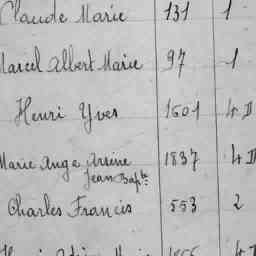 Claude Marie 131 1
Marcel Albert Marie 97 1
Henri Yves 1601 4 II
Marie Ange Arsine 1837 4 II
Jean Bapte
Charles Francis 553 2